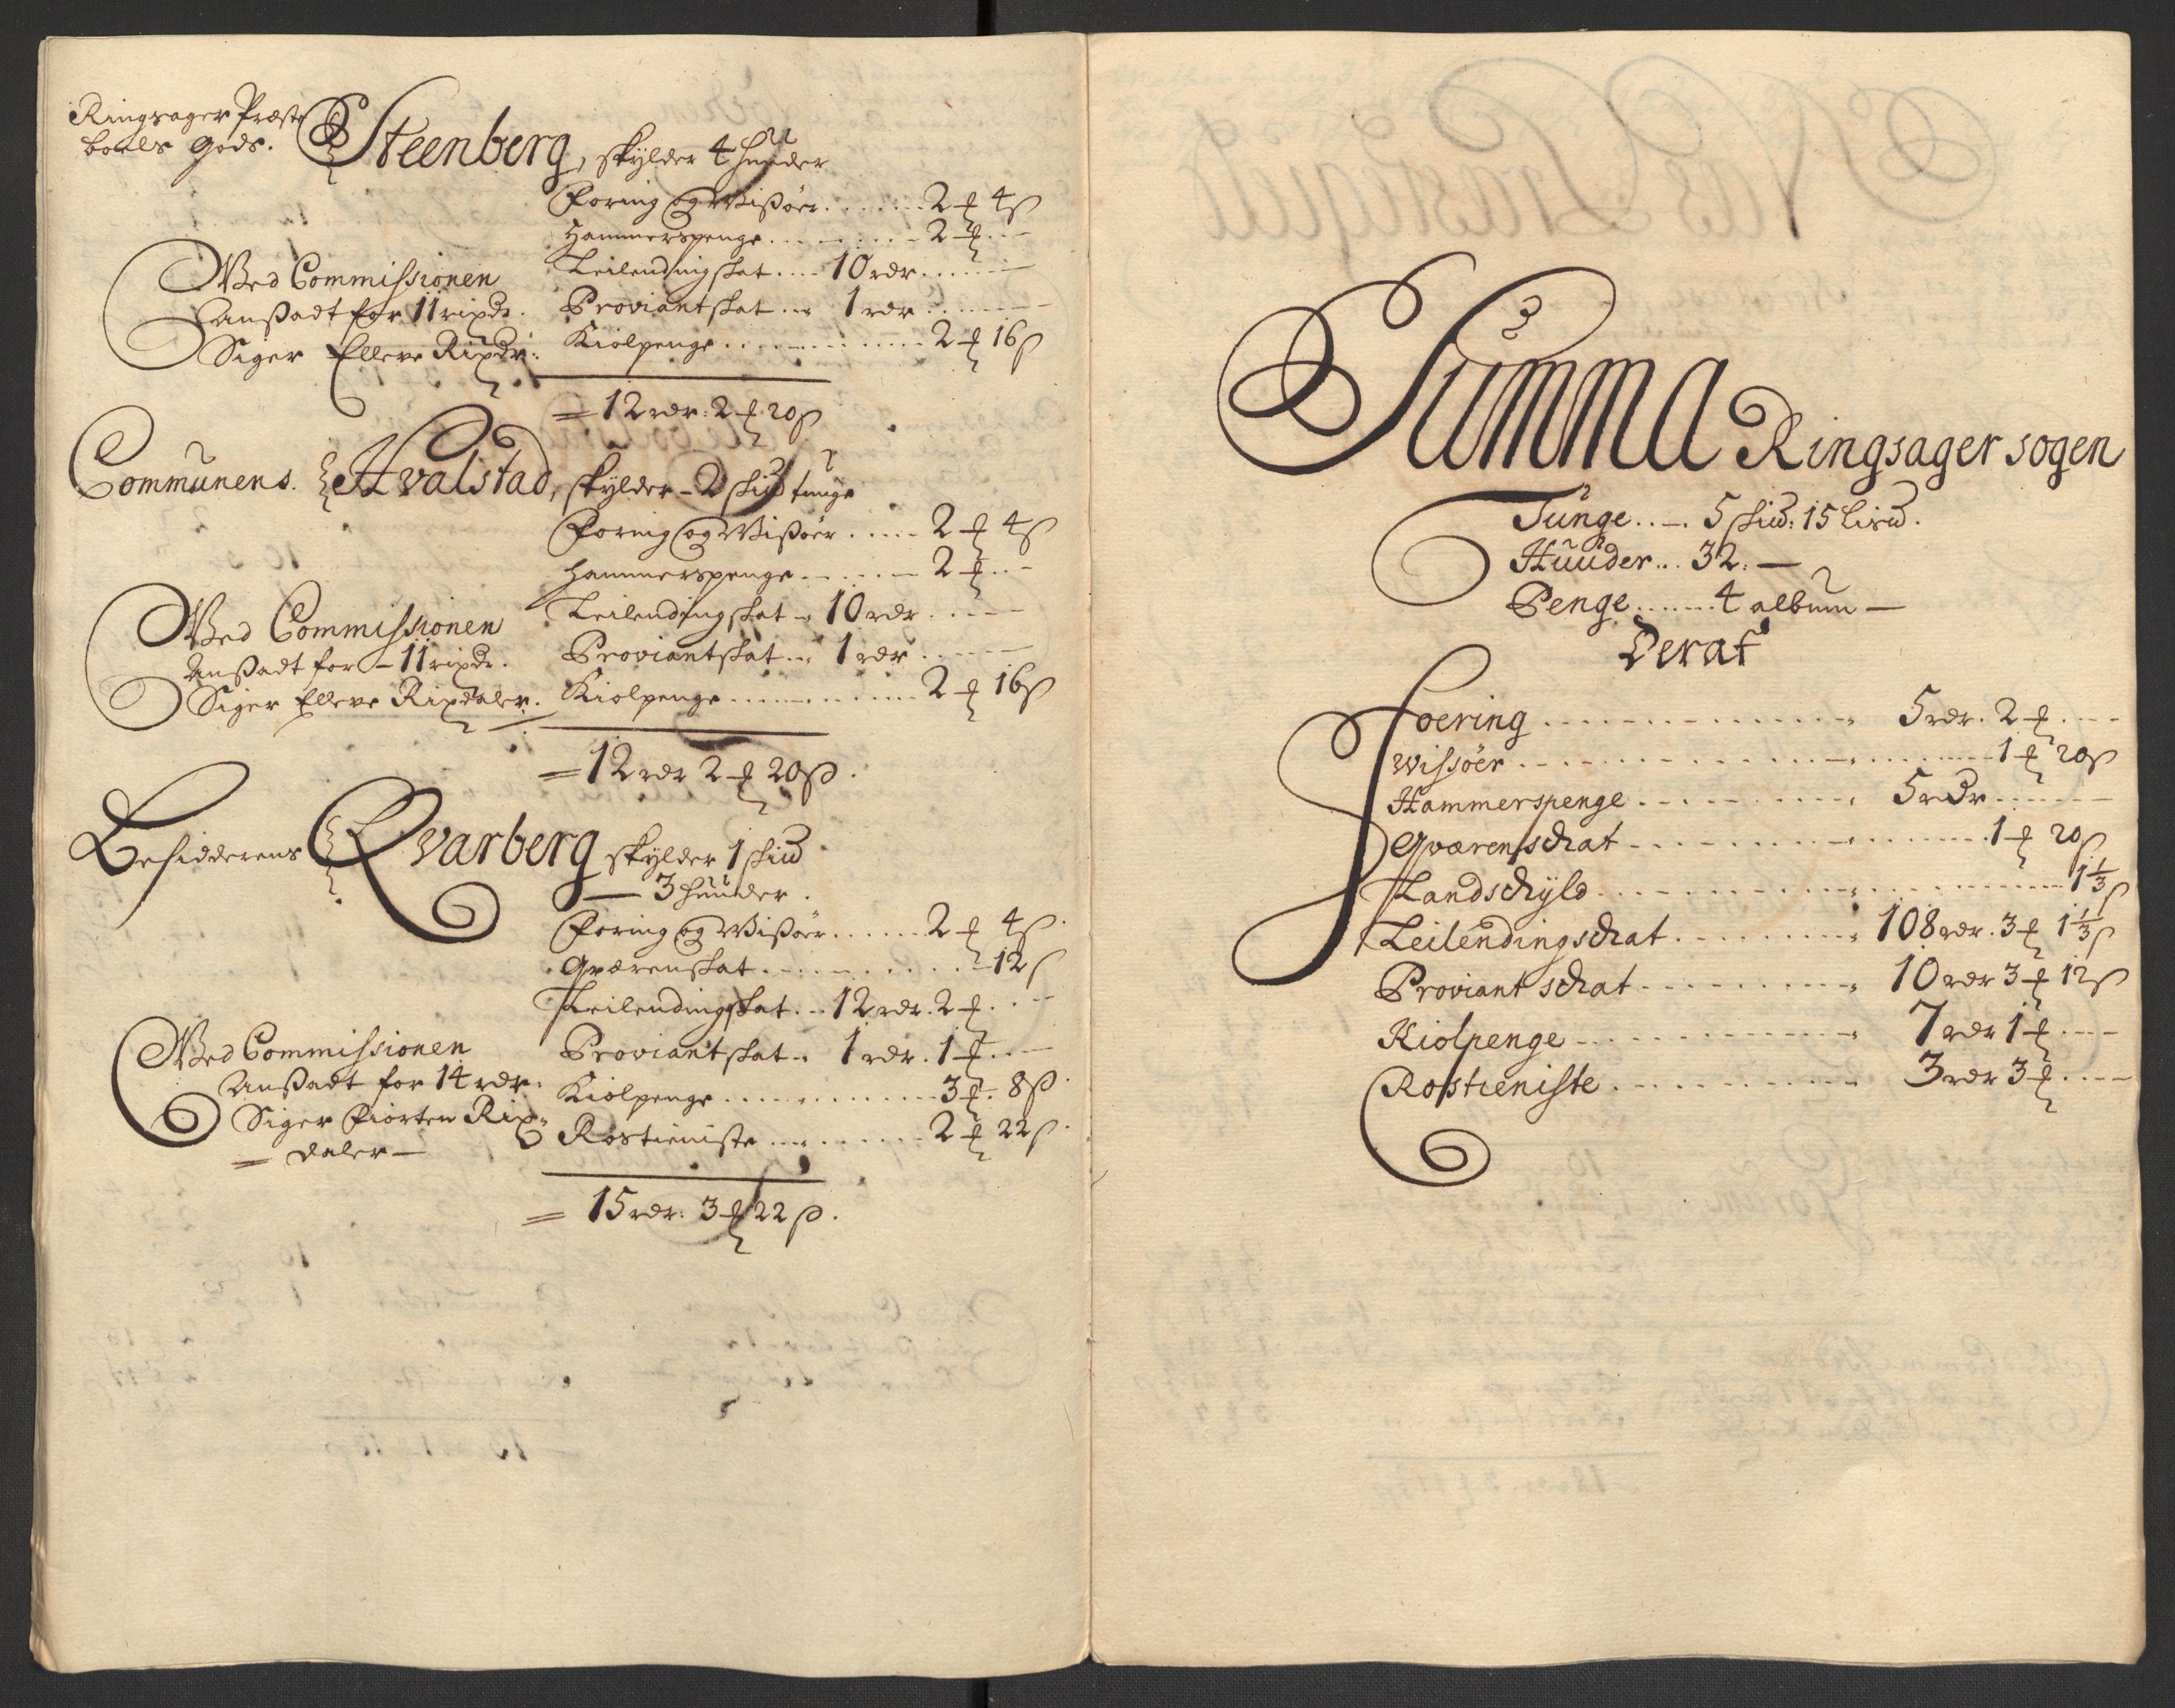 Ringsager Præste
boels Gods. Steenberg, skylder 4 huuder
Foring og Wissøer . . . . . . 2 ₰ 4 ß
Hammerspenge . . . . . . . . 2 ₰ . . —
Leilendingskat . . . . 10 rdr . . . . . —
Proviantskat . . . 1 rdr . . . . . —
Kiolpenge . . . . . . . . . . . 2 ₰ 16 ß
Wed Commissionen
Ansadt for 11 rixdr.
Siger Elleve Rixdr:
= 12 rdr: 2 ₰ 20 ß
Communens. Hvalstad, skylder – 2 skiud tunge
Foring og Wissøer . . . . . 2 ₰ 4 ß
Hammerspenge . . . . . — 2 ₰ . . –
Leilendingskat – 10 rdr . . . . —
Proviantskat . . . 1 rdr . . . . —
Kiolpenge . . . . . . . . . . . 2 ₰ 16 ß
Wed Commissionen
Ansadt for – 11 rixdr.
Siger Elleve Rixdaler.
= 12 rdr 2 ₰ 20 ß.
Besidderens Qvarberg skylder 1 skiud
— 3 huuder.
Foring og Wissøer . . . . . . 2 ₰ 4 ß.
Qværenskat . . . . . . . . . . – 12 ß
Leilendingskat . . – 12 rdr. 2 ₰ . . –
Proviantskat . . 1 rdr. 1 ₰ . . . —
Kiolpenge . . . . . . . . . . . 3 ₰. 8 ß.
Rostieniste . . . . . . . . . 2 ₰ 22 ß.
Wed Commissionen
Ansadt for 14 rdr.
Siger Fiorten Rix=
= daler —
= 15 rdr: 3 ₰ 22 ß.
Summa Ringsager sogen
Tunge . . – . 5 skiud: 15 lisud.
Huuder . . . 32. —
Penge . . . . . . 4 album —
Deraf
Foering . . . . . . . . . . . . . 5 rdr. 2 ₰ . . . –
Wissøer . . . . . . . . . . . . . . . . . . 1 ₰ 20 ß
Hammerspenge . . . . . . . . . . 5 rdr . . . . . —
Qværenschat . . . . . . . . . . . . . . . 1 ₰ 20 ß
Landschyld . . . . . . . . . . . . . . . . . . 1⅓ ß
Leilendingschat . . . . . . . . . 108 rdr. 3 ₰ 1⅓ ß
Proviant schat . . . . . . . . . 10 rdr 3 ₰ 12 ß
Kiolpenge . . . . . . . . . . . . 7 rdr 1 ₰ . . . –
Rostieniste . . . . . . . . . . . 3 rdr 3 ₰ . . . —